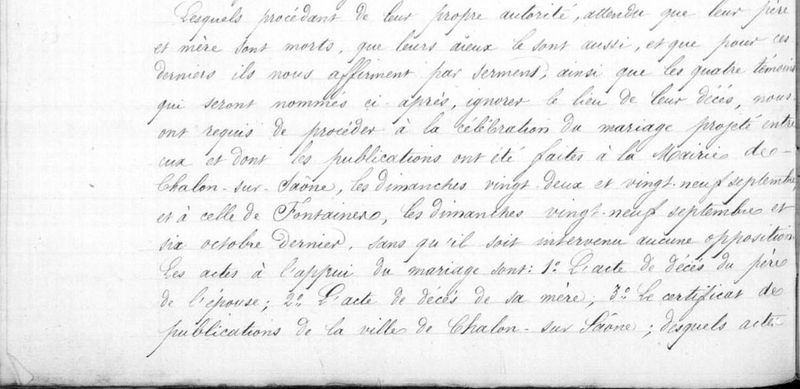 Lesquels procédant de leur propre autorité, attendu que leur père
et mère sont morts, que leurs aïeux le sont aussi, et que pour ces
derniers ils nous affirment par serment, ainsi que les quatre témoins
qui seront nommés ci-après, ignorer le lieu de leur décès, nous
ont requis de procéder à la célébration du mariage projeté entre
eux et dont les publications ont été faites à la Mairie de
Chalon-sur-Saône, les dimanches vingt-deux et vingt-neuf septembre
et à celle de Fontaines, les dimanches vingt-neuf septembre et
six octobre dernier, sans qu'il soit intervenu aucune opposition
Les actes à l'appui du mariage sont: 1º L'acte de décès du père
de l'épouse; 2º L'acte de décès de sa mère; 3º Le certificat de
publications de la ville de Chalon-sur-Saône; desquels acte